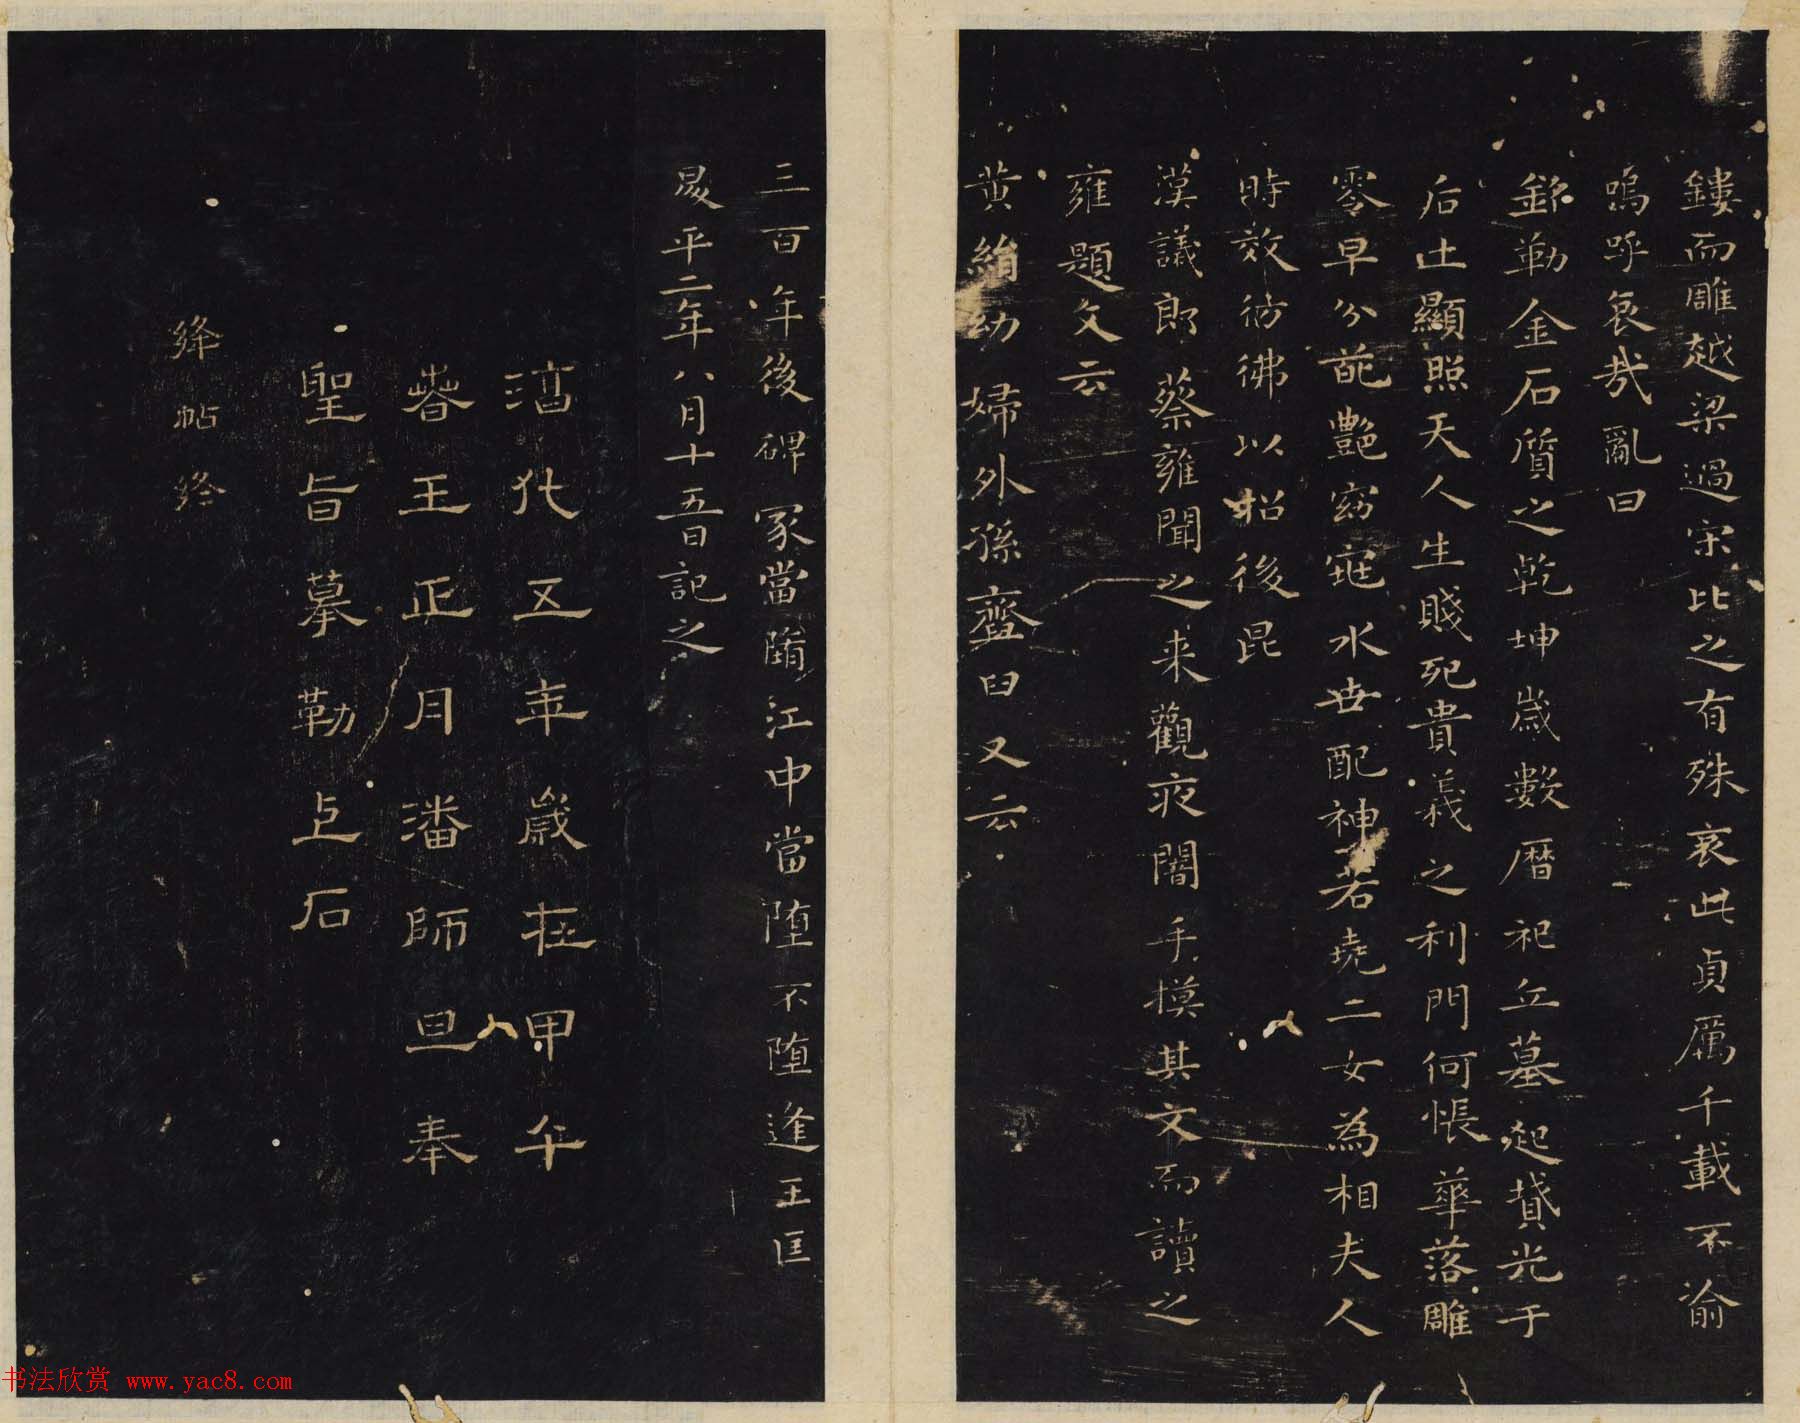 鏤而雕越梁過宋比之有殊哀此貞厲千載不渝
嗚呼哀哉亂曰
銘勒金石質之乾坤歲數曆祀丘墓起墳光于
后土顯照天人生賤死貴義之利門何悵華落雕
零早分葩艷窈窕永世配神若堯二女為相夫人
時效彷彿以招後昆
漢議郎蔡雍聞之来觀夜闇手摸其文而讀之
雍題文云
黄絹幼婦外孫齏臼又云
三百年後碑冢當隋江中當墮不墮逢王匡
昇平二年八月十五日記之
淳化五年歲在甲午
春王正月潘師旦奉
聖旨摹勒上石
絳帖終
书法欣赏 www.yac8.com